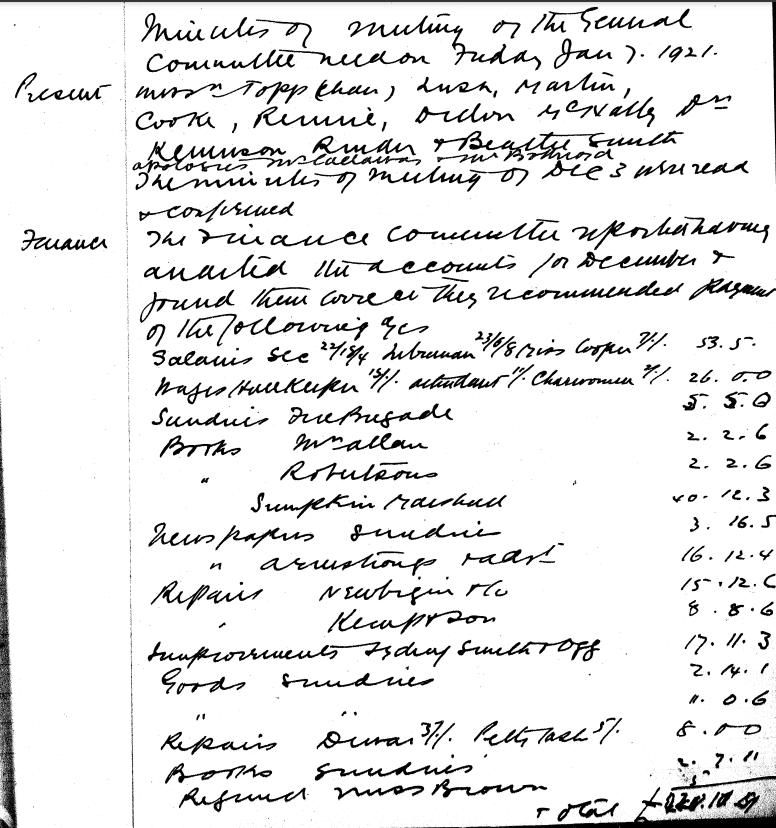 Minutes of meeting of the General
Committee held on Friday Jan 7. 1921.
Present Messrs Topp (chair) Lusk, Martin,
Cooke, Rennie, McNally Drs
& Beattie Smith
apologies Mr &
The minutes of meeting of Dec 3 were read
& confirmed
Finance The Finance Committee reported having
audited the accounts for December &
found them correct they recommended payment
of the following a/cs
Salaries Sec Librarian Miss Cooper 53. 5.
Wages Housekeeper attendant Charwomen 26. 0.0
Sundries Fire Brigade 5. 5. 0
Books McAllan 2. 2. 6
" Robertsons 2. 2. 6
Simpkin Marshall 40. 12. 3
Newspapers Sundries 3. 16. 5
" Armstrongs 16. 12. 4
Repairs Newbigin & Co 15. 12. 6
" Kemp & Son 8. 8. 6
Improvements Sydney Smith & Ogg 17. 11. 3
Goods Sundries 2. 14. 1
" " 11. 0. 6
Repairs Dewar 37/. Petty Cash 5/. 8. 00
Books Sundries 2. 7. 11
Refund Miss Brown 5
Total £